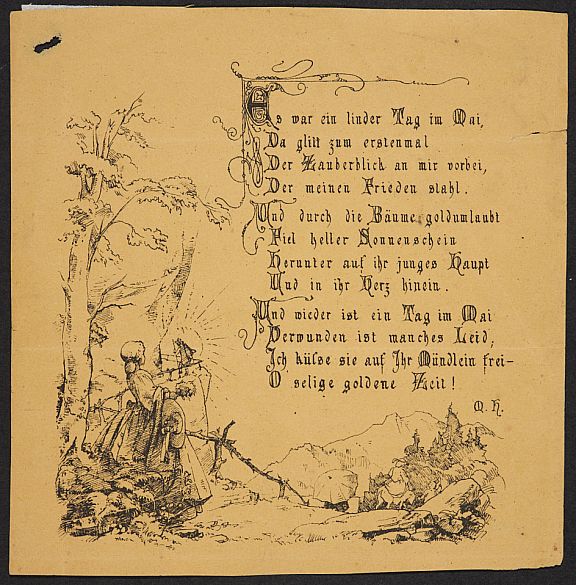 Es war ein linder Tag im Mai,
Da glitt zum erstenmal
Der Zauberblick an mir vorbei,
Der meinen Frieden stahl.
Und durch die Bäume goldumlaubt
Fiel heller Sonnenschein
Herunter auf ihr junges Haupt
Und in ihr Herz hinein.
Und wieder ist ein Tag im Mai
Verwunden ist manches Leid,
Ich küsse sie auf Ihr Mündlein frei-
O selige goldene Zeit!
M. H.